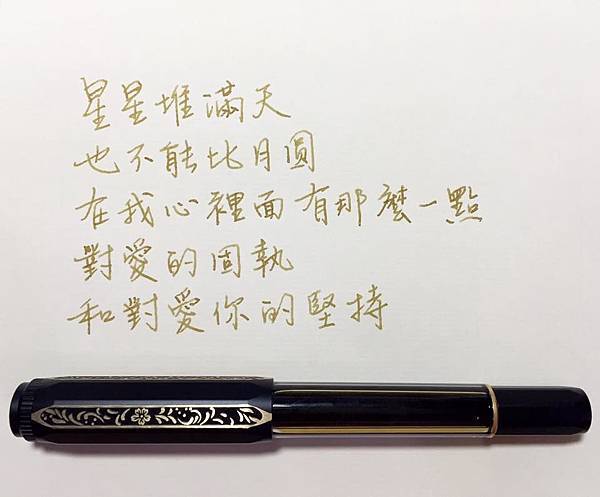 星星堆滿天
也不能比月圓
在我心裡面有那麼一點
對愛的固執
和對愛你的堅持